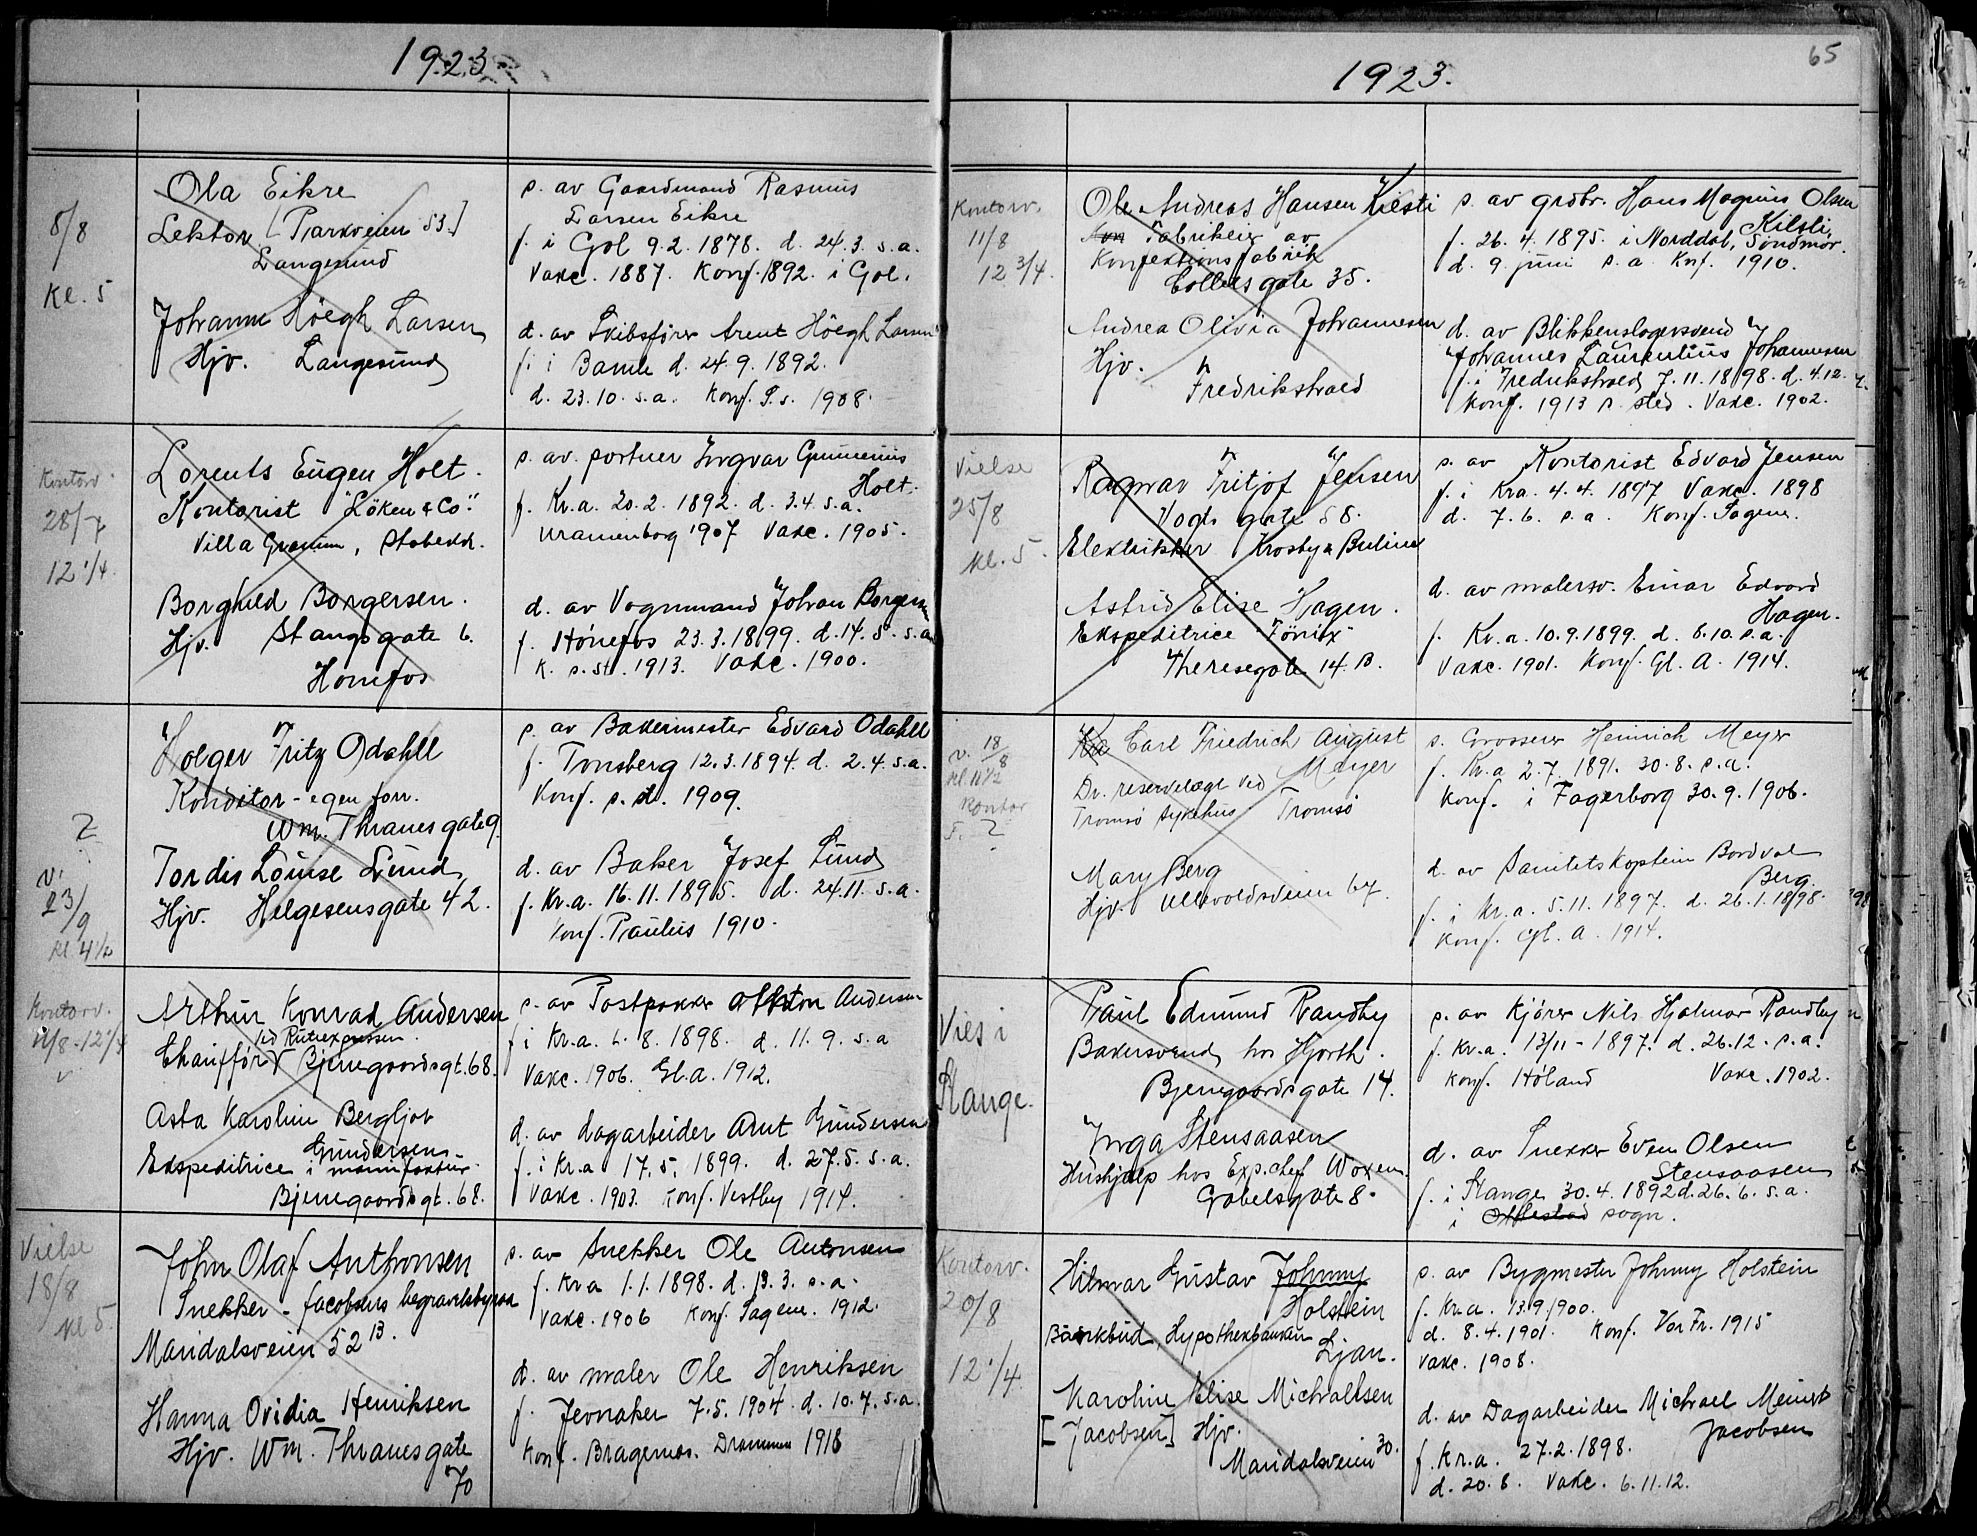 1923
8/8
Kl. 5
Ola Eikre
Lektor [Parkveien 53.]
Langesund
s. av Gaardmand Rasmus
Larsen Eikre
f. i Gol 9.2. 1878. d. 24.3. s.a.
Vakc. 1887. Konf. 1892. i Gol.
Johanne Höegh Larsen
Hjv. Langesund
d. av Skibsförer Arent Höegh Larsen
f. i Bamle d. 24.9. 1892.
d. 23.10. s.a. Konf. 1908.
Kontorv.
28/7
12 1/4.
Lorents Eugen Holt.
Kontorist "Löken & Co".
Villa Granum, Stabekk.
s. av. portner Ingvar Gunnerius
Holt.
f. Kr.a. 20.2. 1892. d. 3.4. s.a.
Uranienborg 1907 Vakc. 1905.
Borghild Borgersen.
Hjv. Stangsgate 6.
Hönefos
d. av Vognmand Johan Borgersen
f. Hönefos 23.3.1899. d. 14.5. s.a.
K. s.st. 1913. Vakc. 1900.
?
v.
23/9
kl 4 1/2
Holger Fritz Odahll
Konditor - egen forr.
Wm. Thranes gate 9
s. av Bakermester Edvard Odahll
f. Tønsberg 12.3.1894. d. 2.4. s.a.
Konf. s. st. 1909.
Tordis Louise Lund
Hjv. Helgesensgate 42.
d. av Baker Josef Lund
f. Kr.a. 16.11.1895. d. 24.11. s.a.
Konf. Paulus 1910.
Kontorv.
Arthur Konrad Andersen
ved Rutexpressen
Chauffför Bjerregaardsgt. 68.
s. av Postpakker Anton Andersen
f. i Kr.a. 6.8. 1898. d. 11.9. s.a
Vakc. 1906. Gl.a. 1912.
Asta Karoline Bergljot
Gundersen
Ekspeditrice i manufaktur.
Bjerregaardsgt. 68.
d. av dagarbeider Arnt Gundersen
f. i Kr.a 17.5. 1899. d. 27.5. s.a.
Vakc. 1903. Konf. Vestby 1914.
Vielse
18/8
kl 5.
John Olaf Anthonsen
Snekker - Jacobsens begravelsbyraa
Maridalsveien 52 B.
s. av Snekker Ole Antonsen
f. Kr.a 1.1.1898. d. 13.3. s.a.
Vakc. 1906 Konf. Sagene. 1912.
Hanna Ovidia Henriksen
Hjv. Wm. Thranesgate
70
d. av maler Ole Henriksen
f. Jevnaker 7.5. 1904. d. 10.7. s.a.
Konf. Bragernes. Drammen 1918
65
1923.
Kontorv.
11/8
12 3/4.
Ole Andreas Hansen Kilsti
Fabrikeier av
Konfektionsfabrik
Colletts gate 35.
s. av grdbr. Hans Magnus Olsen
Kilsti
f. 26.4.1895. i Norddal, Söndmör.
d. 9. juni s.a. Konf. 1910.
Andrea Olivia Johannesen
Hjv.
Fredrikstad
d. av Blikkenslagersvend
Johannes Laurentius Johannesen
f. i Fredrikstad 7.11.1898. d. 4.12.
Konf. 1913 s. sted. Vakc. 1902.
Vielse
25/8
kl. 5.
Ragnar Fritjof Jensen
Vogts gate 58.
Elektrikker Krosby & Buline
s. av Kontorist Edvard Jensen
f. i Kra. 4.4. 1897 Vakc. 1898
d. 7.6. s.a. Konf. Sagene.
Astrid Elise Hagen.
Ekspeditrice "Fönix"
Theresegate 14. B.
d. av malersv. Einar Edvard
Hagen.
f. Kr.a. 10.9.1899. d. 8.10. s.a.
Vakc. 1901. Konf. Gl. A. 1914.
v. 18/8
kl. 11 1/2
Kontor
?
Carl Friedrich August
Meyer
Dr. reservelægt ved
Tromsö sykehus Tromsö
s. Grosserer Heinrich Meyer
f. Kr.a 2.7. 1891. 30.8. s.a.
Konf. i Fagerborg 30.9.1906.
Mary Berg
Hjv. Ullevoldsveien 67.
d. av Sanitetskaptein Bordval
Berg.
f. i Kr.a. 5.11.1897. d. 26.1.1898.
Konf. Gl. A. 1914.
Vies i
Stange.
Paul Edmund Randby
Bakersvend hos Hjorth.
Bjerregaardsgate 14.
s. av Kjörer Nils Hjalmar Randby
f. Kr.a. 13/11 - 1897. d. 26.12. s.a.
Konf. Höland Vakc. 1902.
Inga Stensaasen
Hushjelp hos Exp.chef Woxen
Gabelsgate 8.
d. av Snekker Even Olsen
Stensaasen
f. i Stange 30.4.1892 d. 26.6. s.a.
i Ottestad sogn.
Kontorv.
20/8
12 1/4.
Hilmar Gustav Johnny
Holstein
Bankbud, Hypothekbanken
Ljan.
s. av Bygmester Johnny Holstein
f. Kr.a. 13.9.1900.
d. 8.4.1901. Konf. Vor Fr. 1915
Vakc. 1908.
Karoline Elise Michaelsen
[Jacobsen] Hjv.
Maridalsveien 30.
d. av Dagarbeider Michael Meinert
Jacobsen
f. Kr.a. 27.2.1898.
d. 20.8. Vakc. 6.11.12.